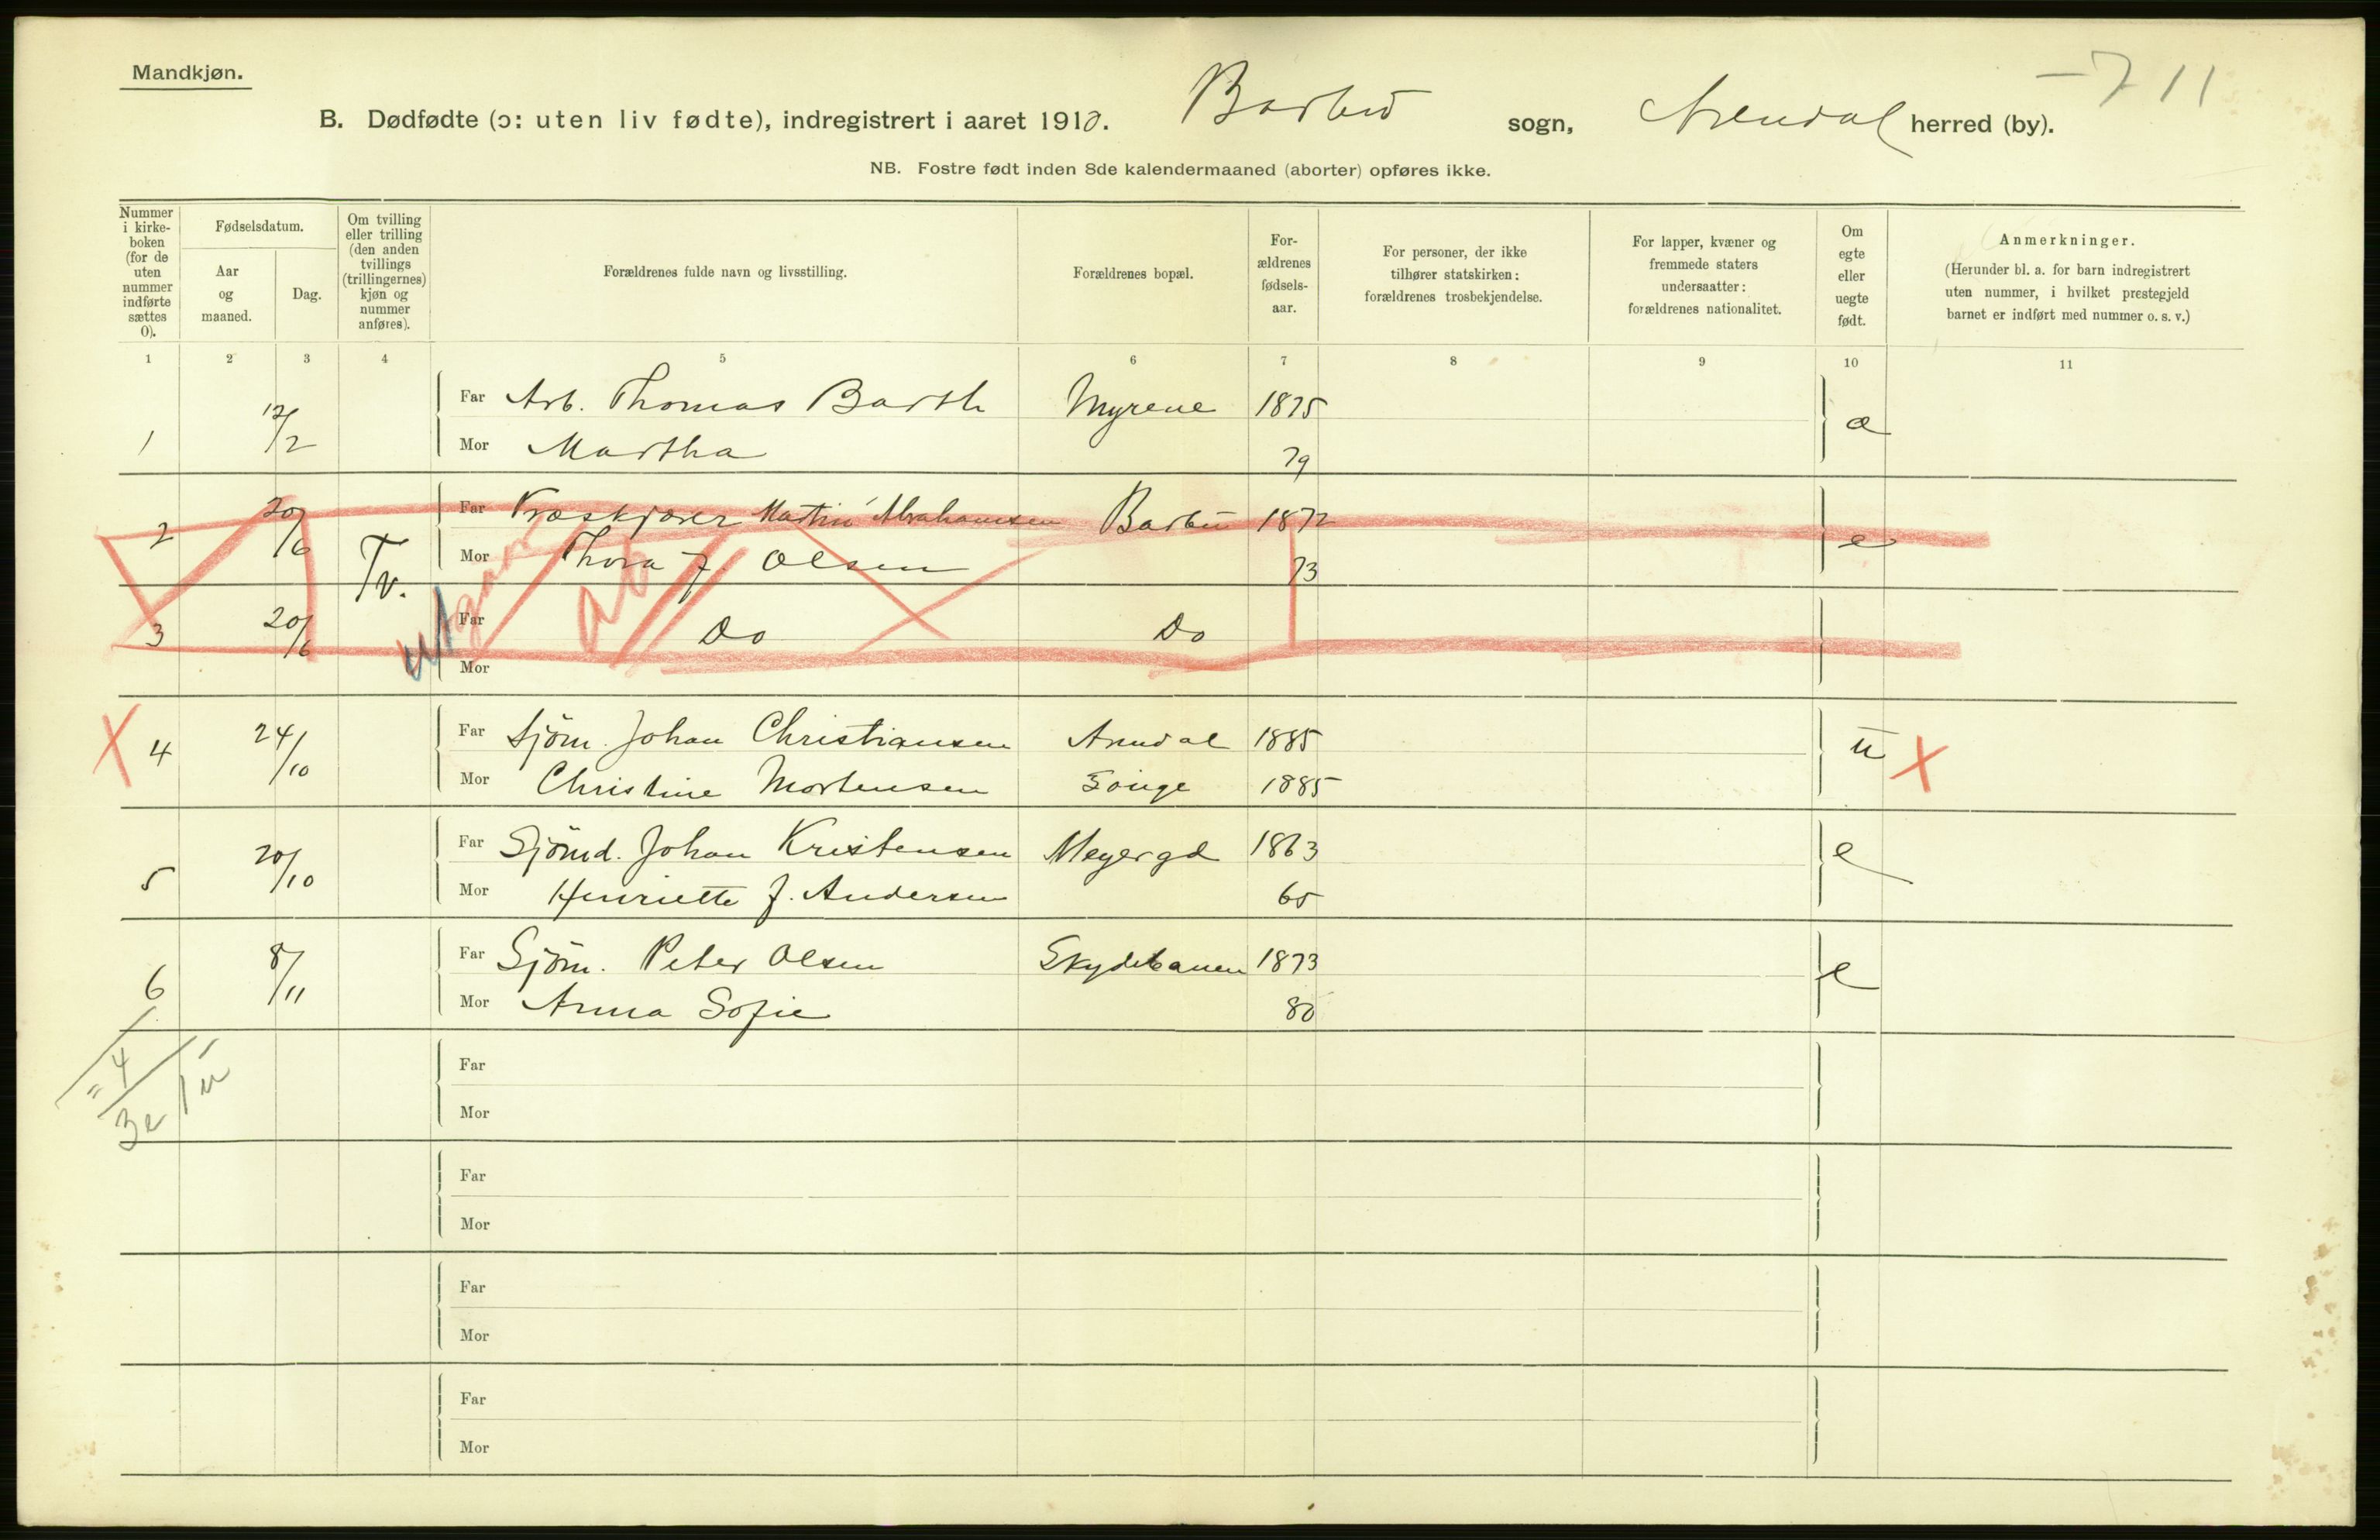 Mandkjøn.
-711
B. Dødfødte (ɔ: uten liv fødte), indregistrert i aaret 1910. Barbu sogn, Arendal herred (by).
NB. Fostre født inden 8de kalendermaaned (aborter) opføres ikke.
Nummer i kirke-boken (for de uten nummer indførte sættes 0).
Fødselsdatum.
Aar og maaned.
Dag.
Om tvilling eller trilling (den anden tvillings (trillingernes) kjøn og nummer anføres).
Forældrenes fulde navn og livsstilling.
Forældrenes bopæl.
For-ældrenes fødsels-aar.
For personer, der ikke tilhører statskirken: forældrenes trosbekjendelse.
For lapper, kvæner og fremmede staters undersaatter: forældrenes nationalitet.
Om egte eller uegte født.
Anmerkninger.
(Herunder bl. a. for barn indregistrert uten nummer, i hvilket prestegjeld barnet er indført med nummer o. s. v.)
1 2 3 4 5 6 7 8 9 10 11
1 12/2 Far Arb. Thomas Barth Myrene 1875 e
Mor Martha 79
2 20/6 Tv. Far Væskjører Martin Abrahamsen Barbu 1872 e
Mor Thora J. Olsen 73
3 20/6 Far Do Do
Mor
4 24/10 Far Sjøm. Johan Christiansen Arendal 1885 u X
Mor Christine Mortensen Songe 1885
5 20/10 Far Sjömd. Johan Kristensen Meyergd 1863 e
Mor Henriette J. Andersen 65
6 8/11 Far Sjöm. Peter Olsen Skydebanen 1873 e
Mor Anna Sofie 80
= 4
3e 1u
Far
Mor
Far
Mor
Far
Mor
Far
Mor